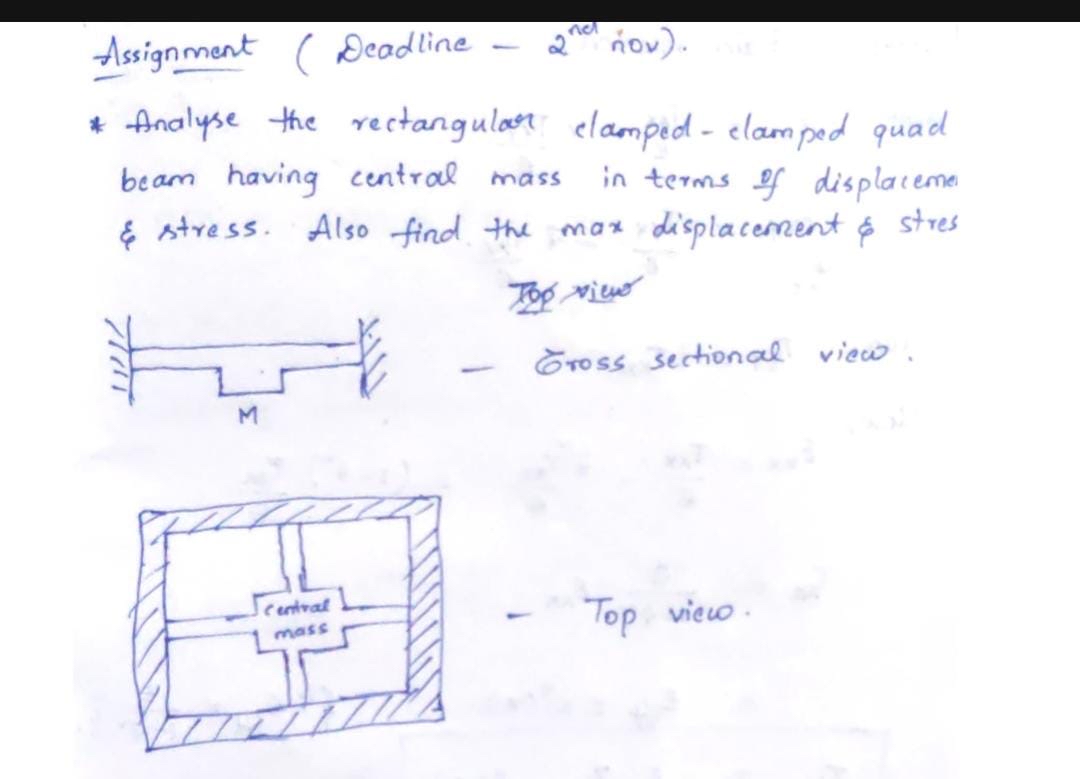 Assignment ( Deadline - 2nd nov).
* Analyse the rectangular clamped - clamped quad
beam having central mass in terms of displaceme
& stress. Also find the max displacement & stres
Top view
- Cross sectional view.
M
central
mass
- Top view.